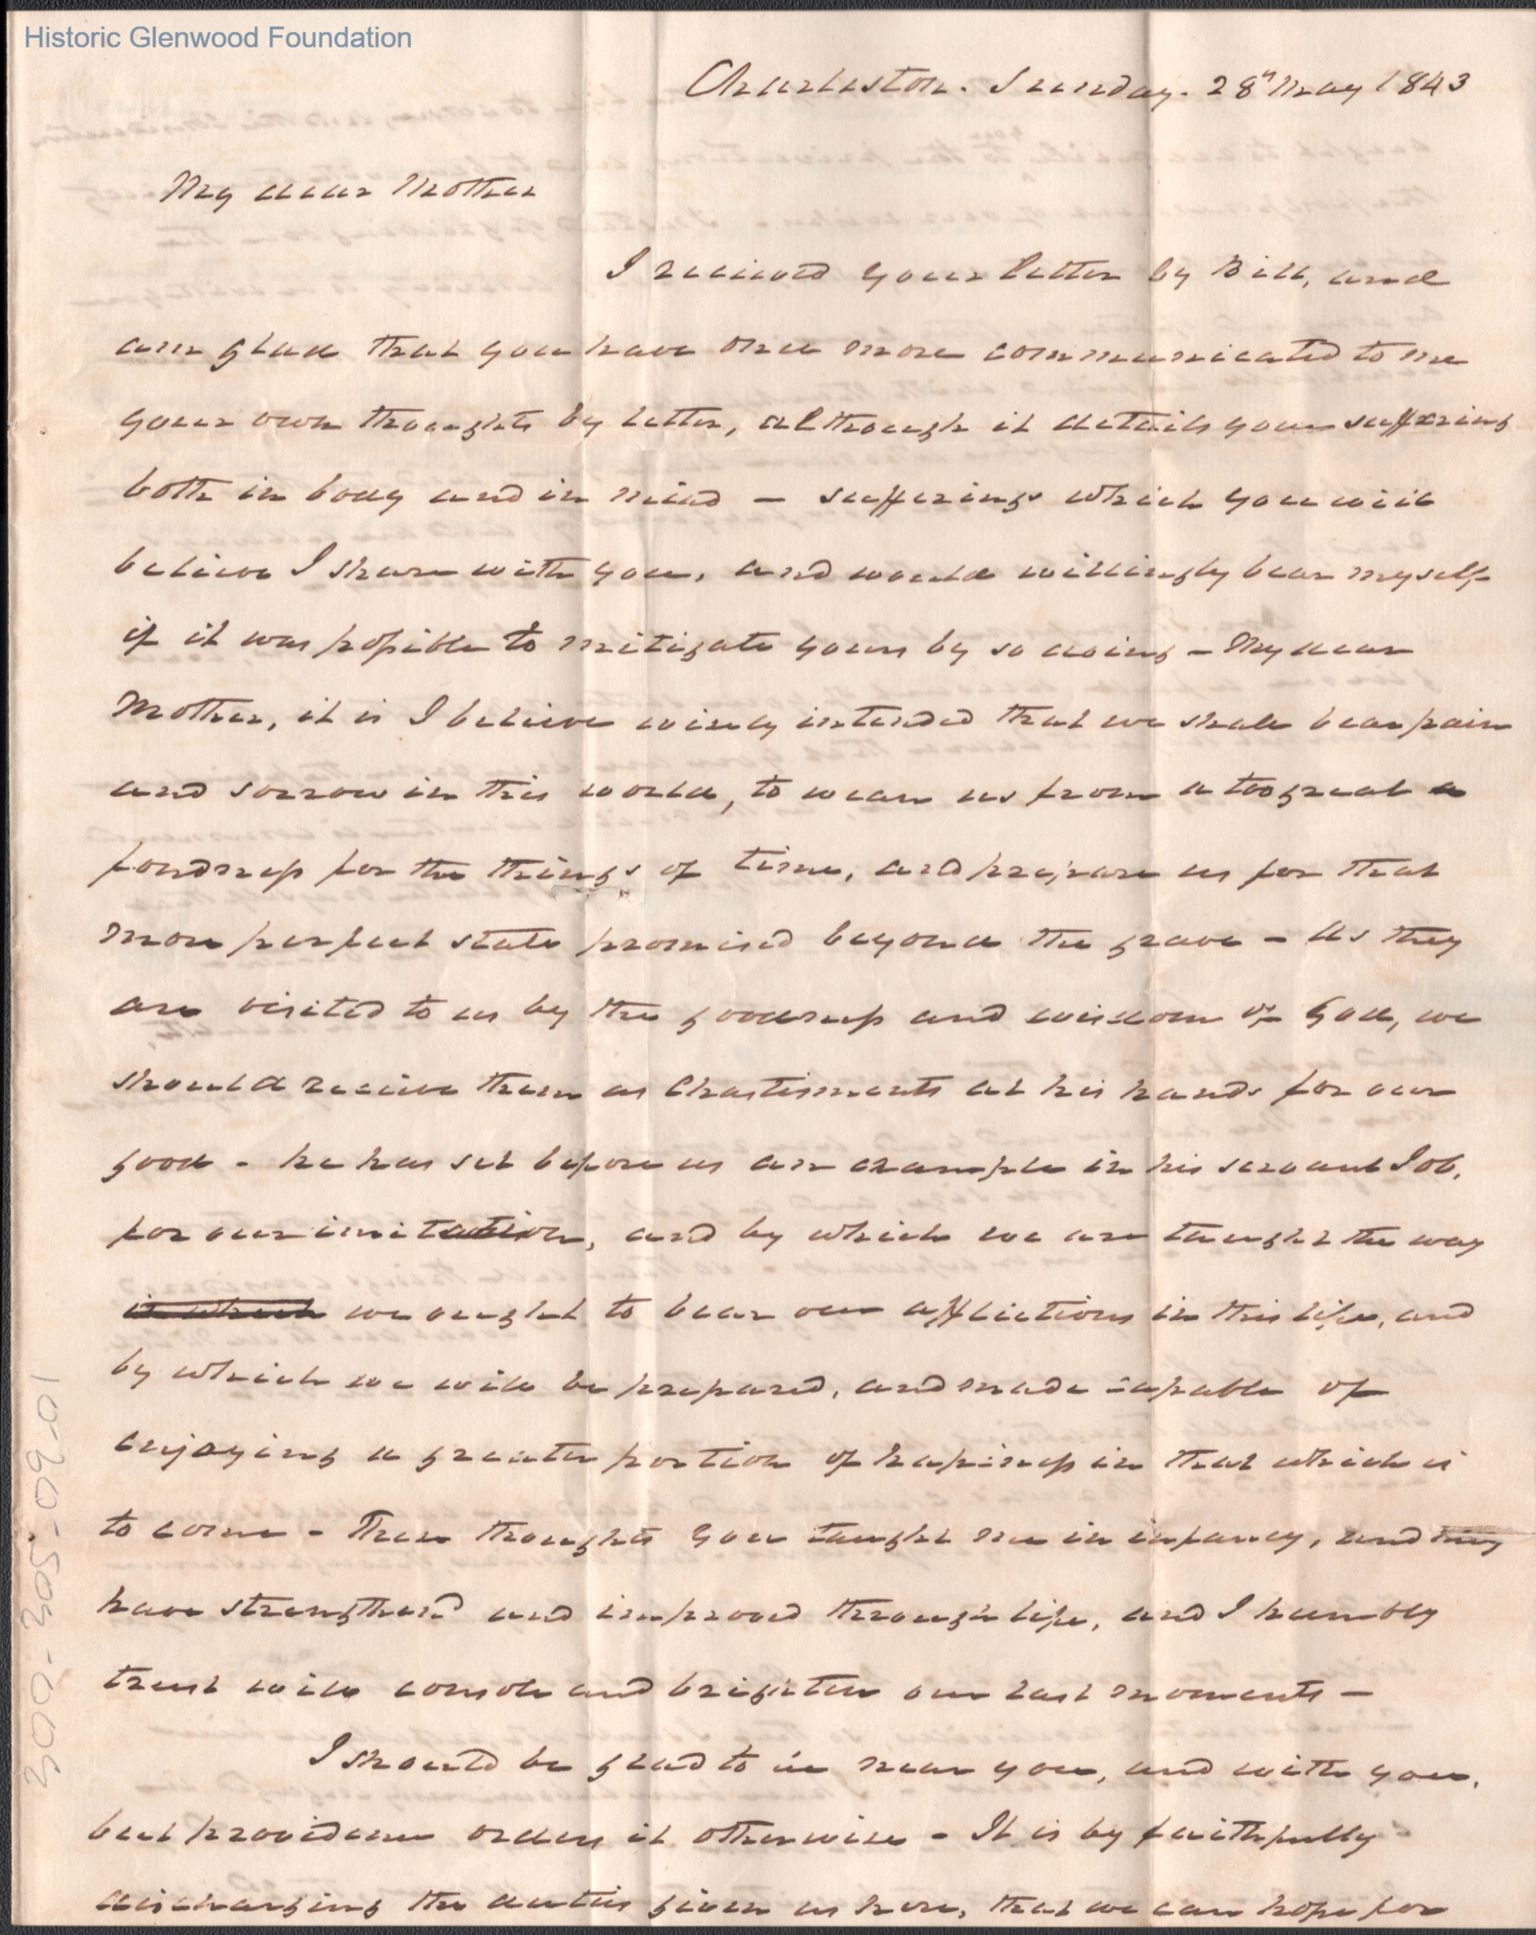 Historic Glenwood Foundation
Charleston. Sunday. 28th May 1843
My dear Mother
I received your letter by Bill, and
am glad that you have once more communicated to me
your own thoughts by letter, although it details your suffering
both in body and in mind — sufferings which you will
believe I share with you, and would willingly bear myself
if it was possible to mitigate yours by so doing — My dear
Mother, it is I believe wisely intended that we shall bear pain
and sorrow in this world, to wean us from a too great a
fondness for the things of time, and prepare us for that
more perfect state promised beyond the grave — As they
are visited to us by the goodness and wisdom of God, we
should receive them as Chastisments at his hands for our
good - he has set before us an example in his servant Job,
for our imitation, and by which we are taught the way
in which we ought to bear our afflictions in this life, and
by which we will be prepared, and made capable of
enjoying a greater portion of happiness in that which is
to come - These thoughts you taught me in infancy, and they
have strengthend and improved through life, and I humbly
trust will console and brighten our last moments —
I should be glad to live near you, and with you,
but providence orders it otherwise - It is by faithfully
discharging the duties given us here, that we can hope for
300-305-060-01